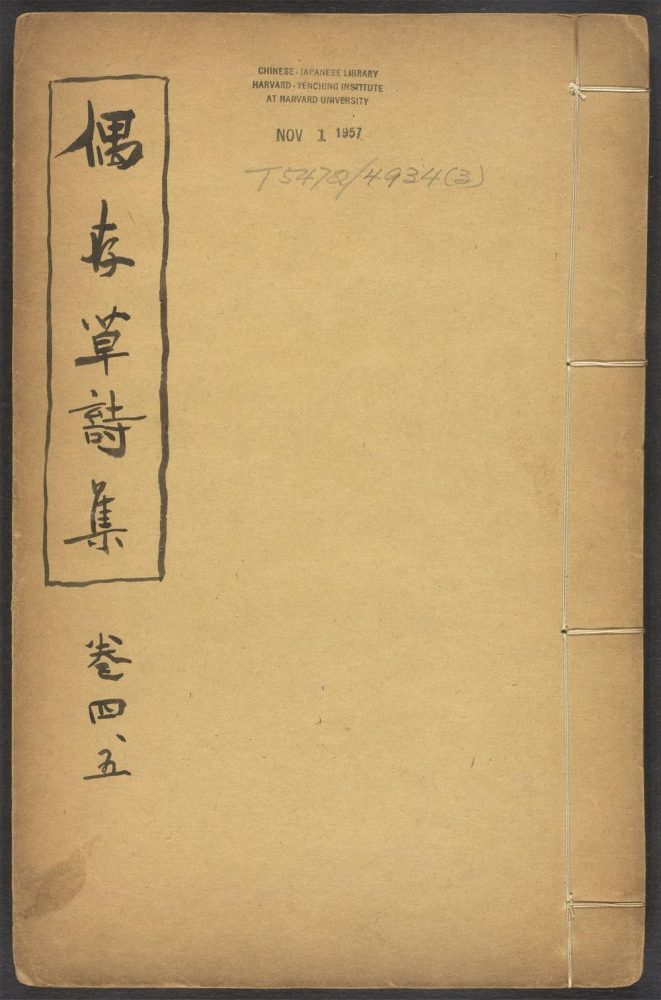 偶存草詩集
卷四、五
CHINESE-JAPANESE LIBRARY
HARVARD-YENCHING INSTITUTE
AT HARVARD UNIVERSITY
NOV 1 1957
T5478/4934(3)